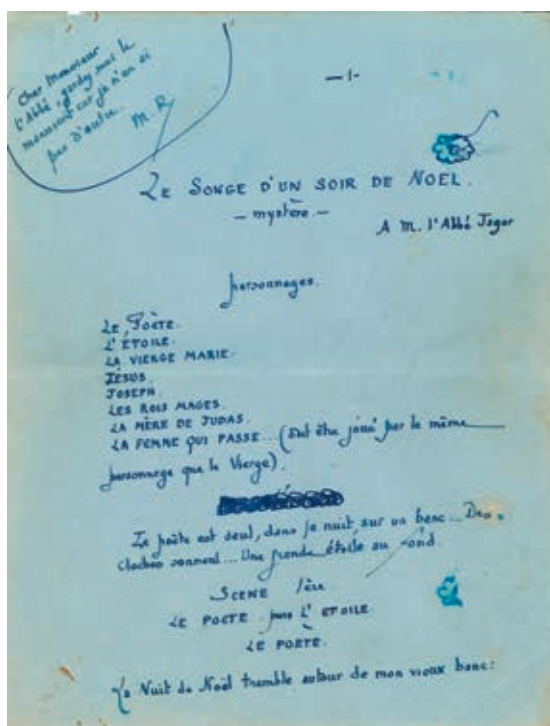 Cher Monsieur
l'Abbé, gardez moi le
manuscrit car je n'en ai
pas d'autre...
M. R.
— 1 -
LE SONGE D'UN SOIR DE NOEL.
— mystère. —
A M. l'Abbé Jager
personnages.
LE POÈTE.
L'ÉTOILE.
LA VIERGE MARIE.
JÉSUS.
JOSEPH.
LES ROIS MAGES.
LA MÈRE DE JUDAS.
LA FEMME QUI PASSE... (doit être joué par le même
personnage que la Vierge).
Le poète est seul, dans la nuit, sur un banc... Des
cloches sonnent... Une grande étoile au fond.
SCENE 1ère
LE POETE puis L'ETOILE.
LE POETE.
La Nuit de Noël tremble autour de mon vieux banc: